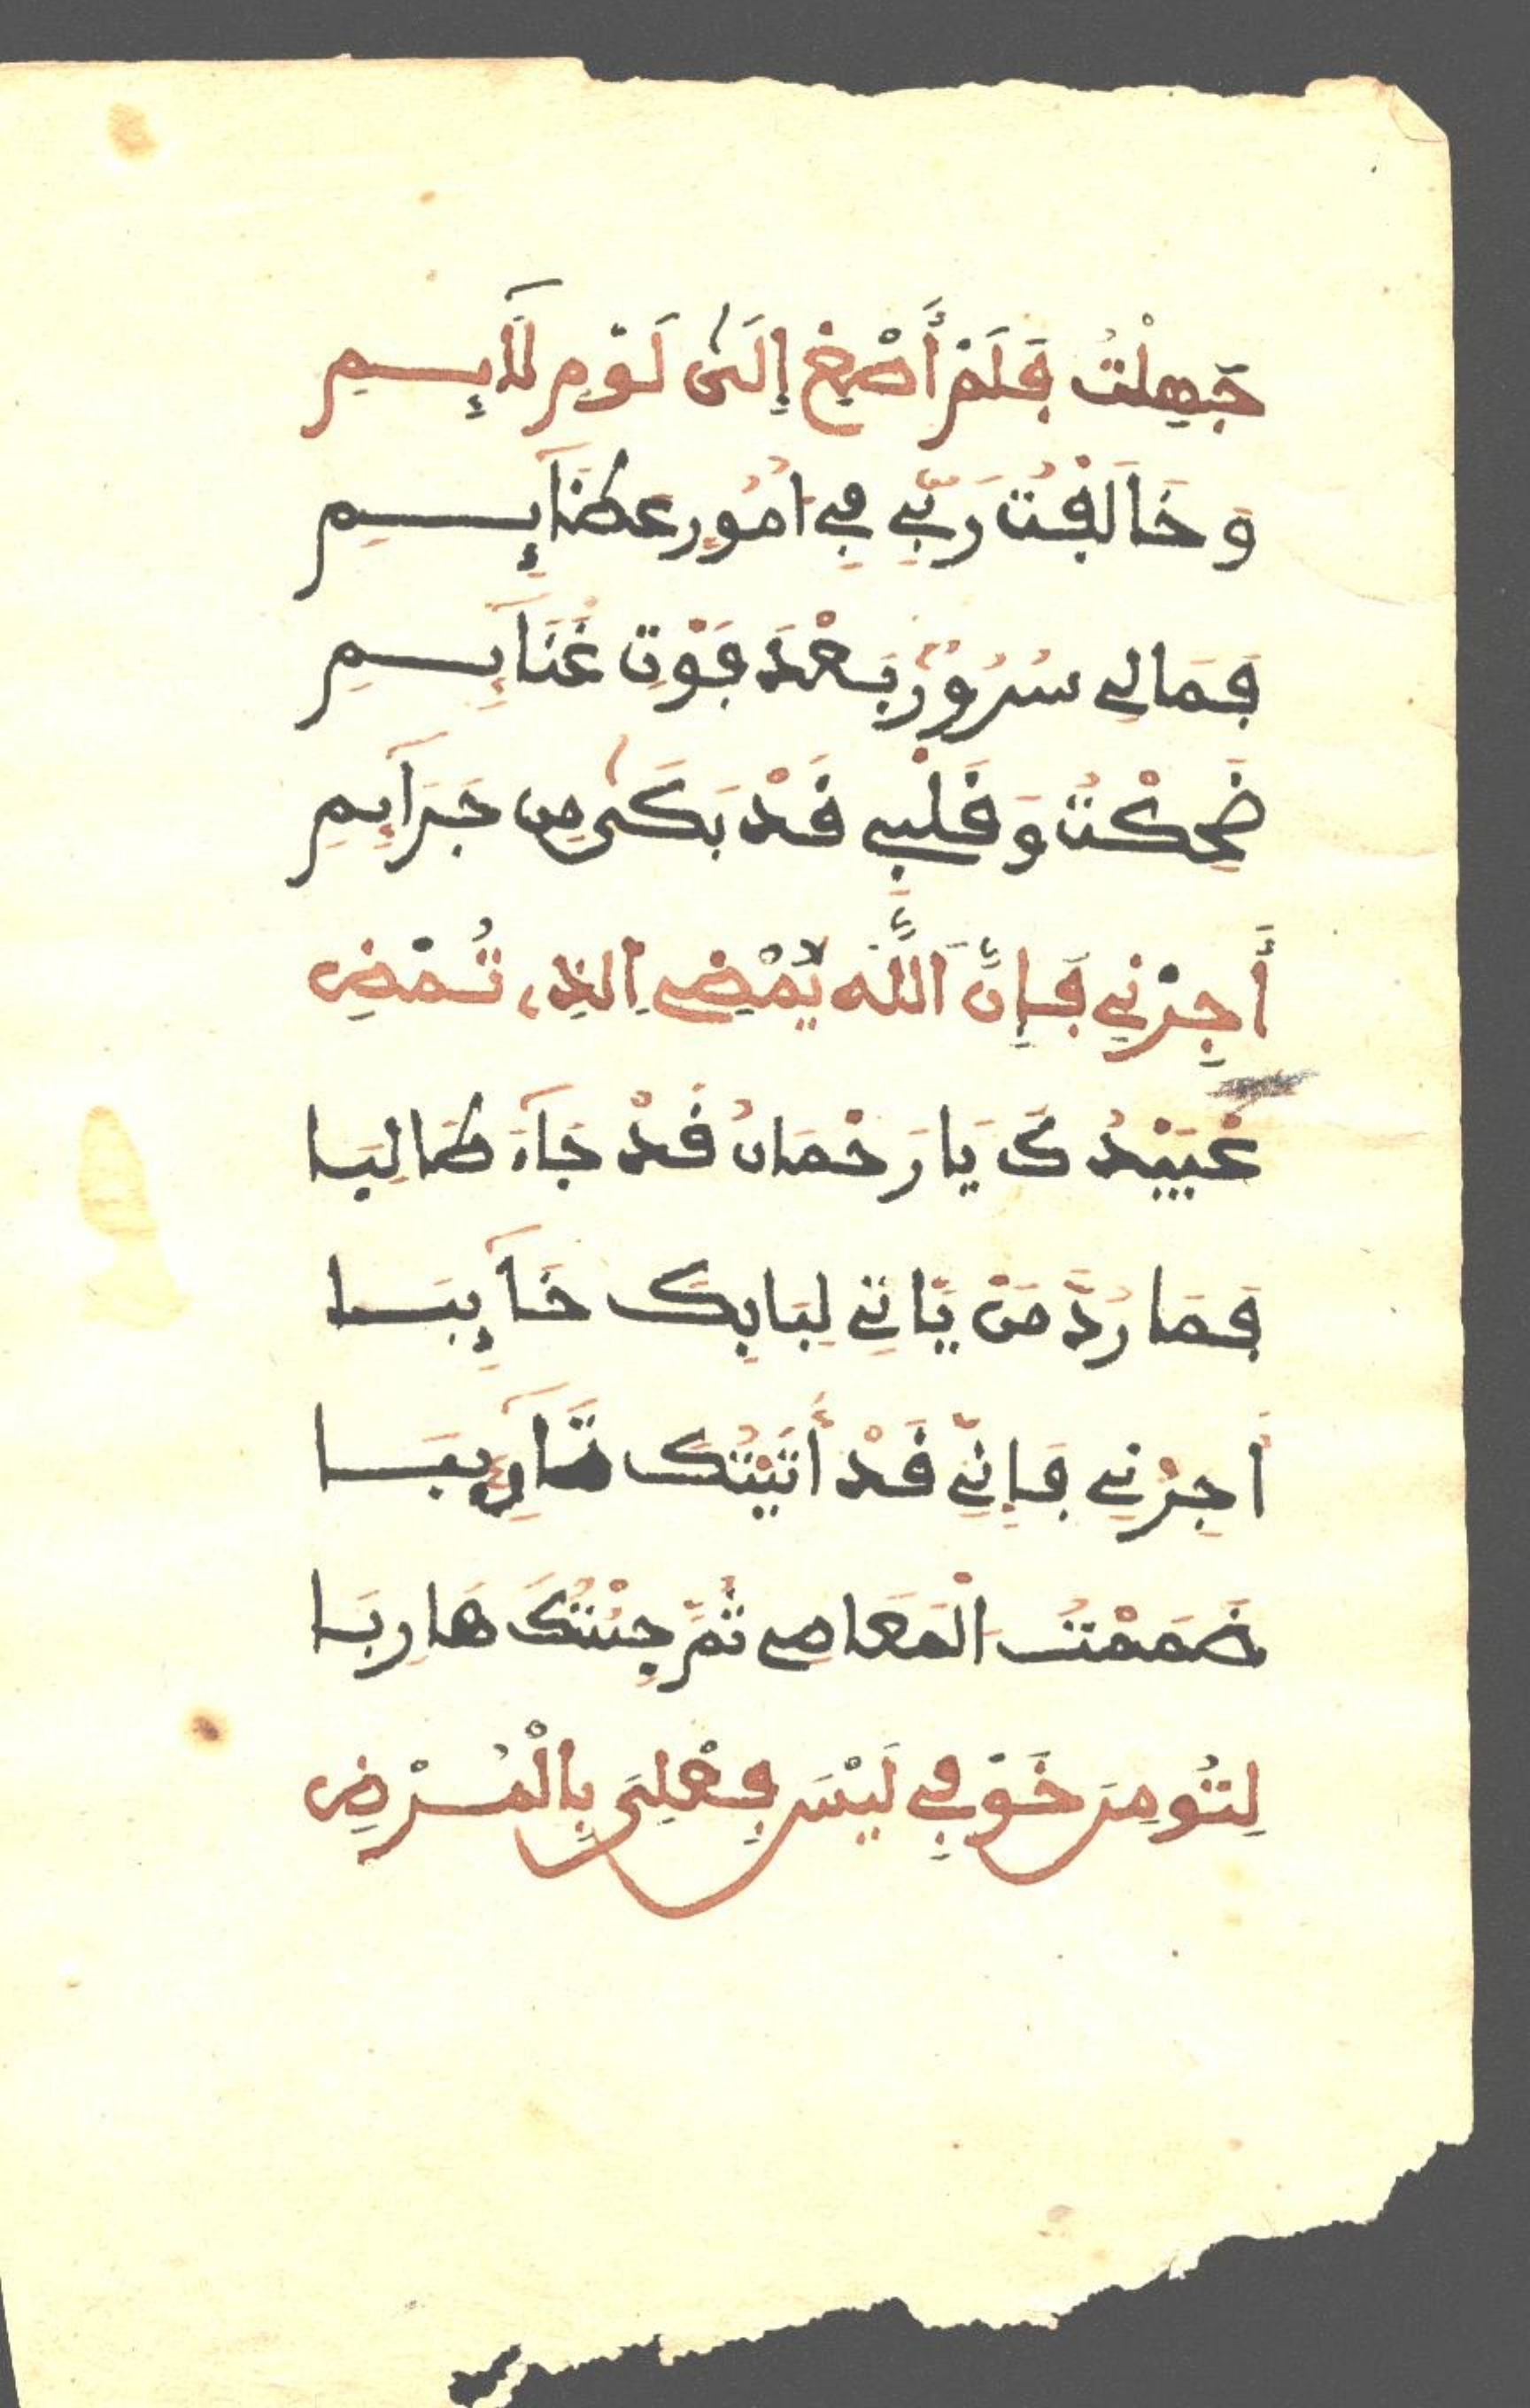 جَهِلْتُ فَلَمْ أَصْغِ إِلَىٰ لَوْمِ لَآئِمِ
وَخَالَفْتُ رَبِّي فِي امُورٍ عَظَآئِمِ
فَمَا لِي سُرُورٌ بَعْدَ فَوْتِ غَنَآئِمِ
ضَحِكْتُ وَقَلْبِي قَدْ بَكَىٰ مِن جَرَآئِمِ
أَجِرْنِي فَإِنَّ اللَّهَ يُمْضِي الذِي تُمْضِ
عُبَيْدُكَ يَا رَحْمَانُ قَدْ جَآءَ طَالِبَا
فَمَا رُدَّ مَنْ يَّاتِي لِبَابِكَ خَآئِبَا
أَجِرْنِي فَإِنِّي قَدْ أَتَيْتُكَ تَآئِبَا
ضَمَمْتُ الْمَعَاصِي ثُمَّ جِئْتُكَ هَارِبَا
لِتُومِنَ خَوْفِي لَيْسَ فِعْلِيَ بِالْمُرْضِ